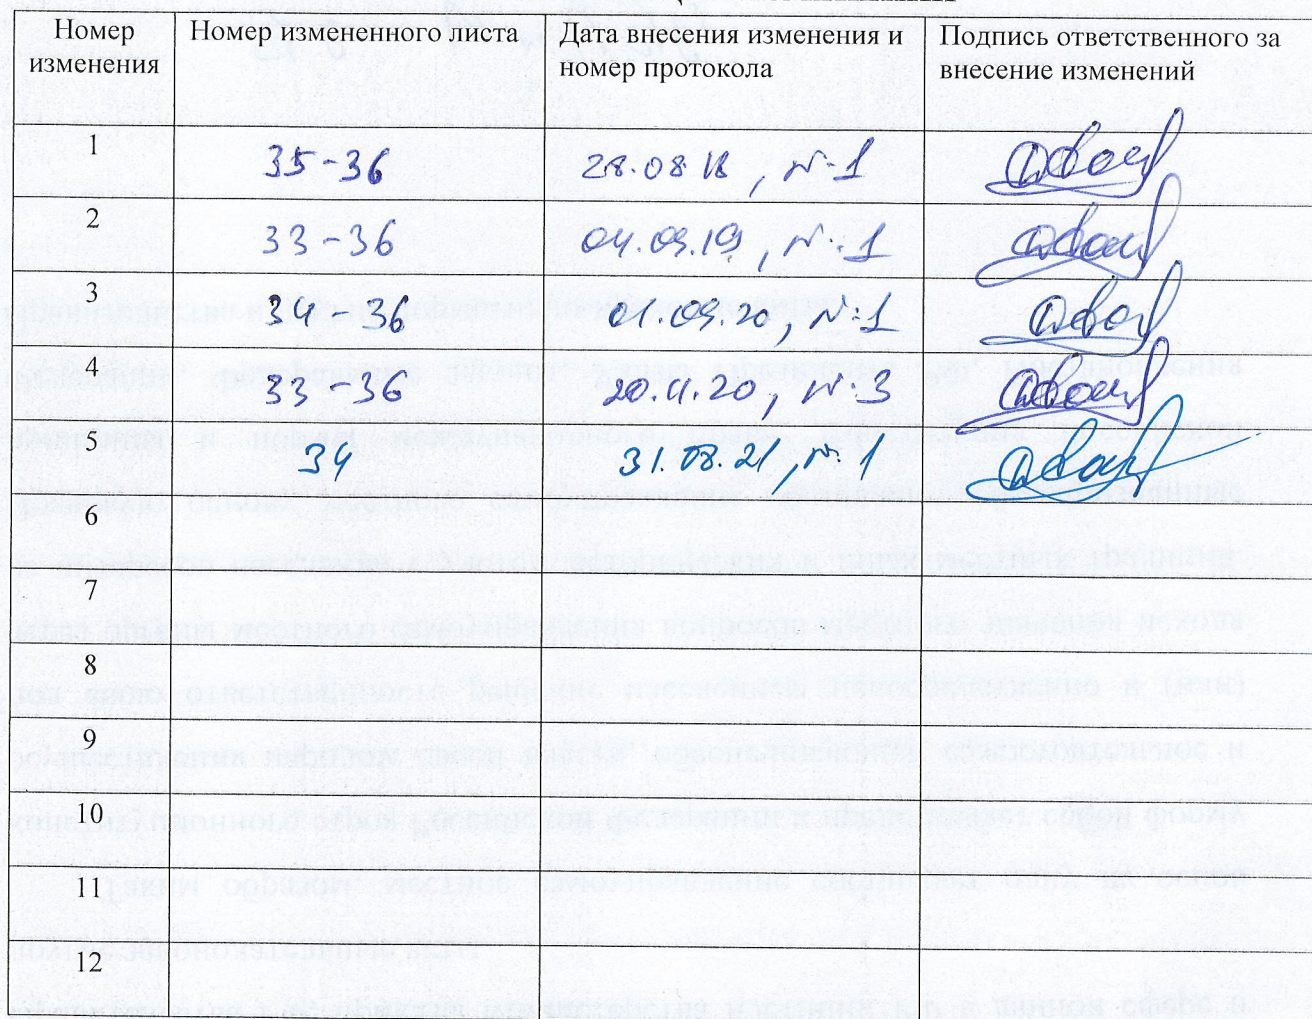 Номер изменения Номер измененного листа Дата внесения изменения и номер протокола Подпись ответственного за внесение изменений
1 35-36 28.08.18, №1
2 33-36 04.09.19, №1
3 34 36 01.09.20, №1
4 33-36 20.11.20, №3
5 34 31.08.21, №1
6
7
8
9
10
11
12